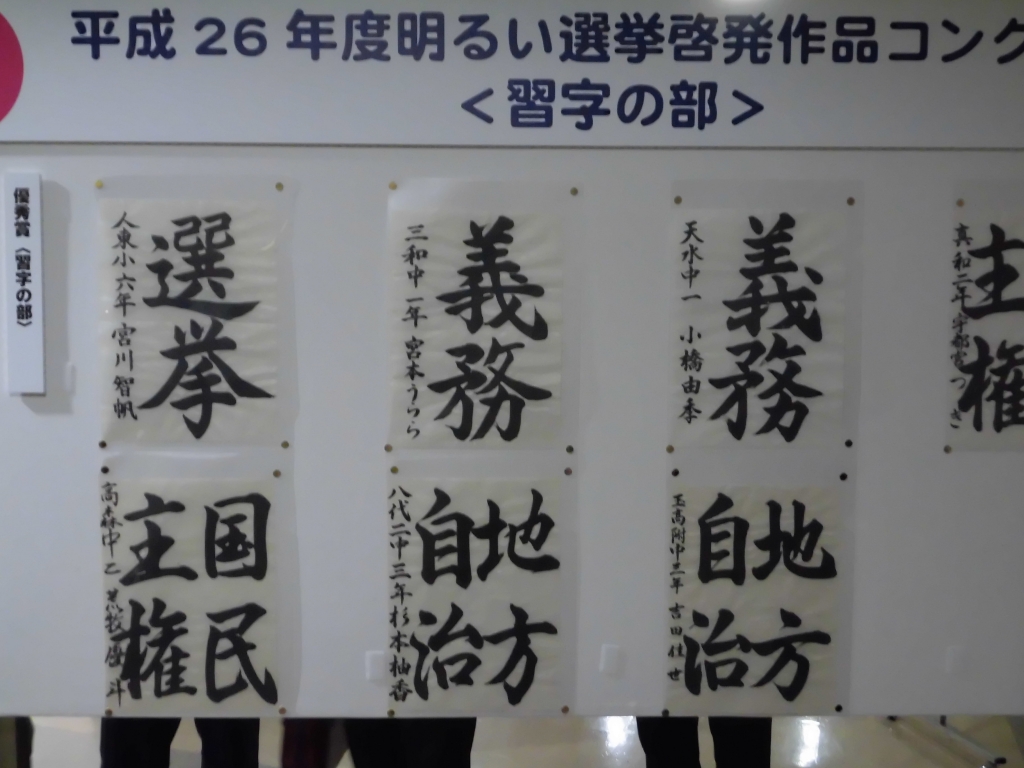 平成26年度明るい選挙啓発作品コンク
<習字の部>
優秀賞〈習字の部〉
選挙
人東小 六年 宮川 智帆
義務
三和中 一年 宮本うらら
義務
天水中一 小橋由季
主権
真和二年 宇都宮つき
国民
主権
高森中二
地方
自治
八代二中三年 杉本柚香
地方
自治
玉高附中三年 吉田佳世